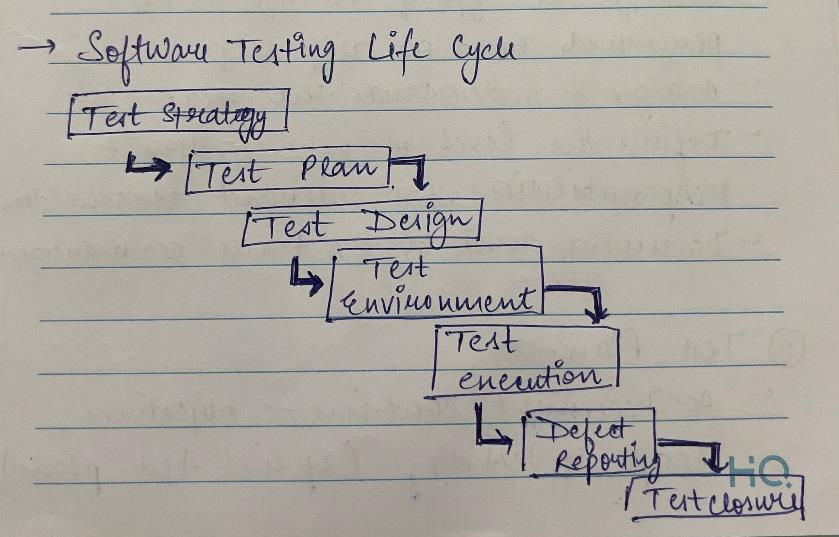 → Software Testing Life Cycle
Test Strategy
Test Plan
Test Design
Test
Environment
Test
execution
Defect
Reporting
HQ
Test closure